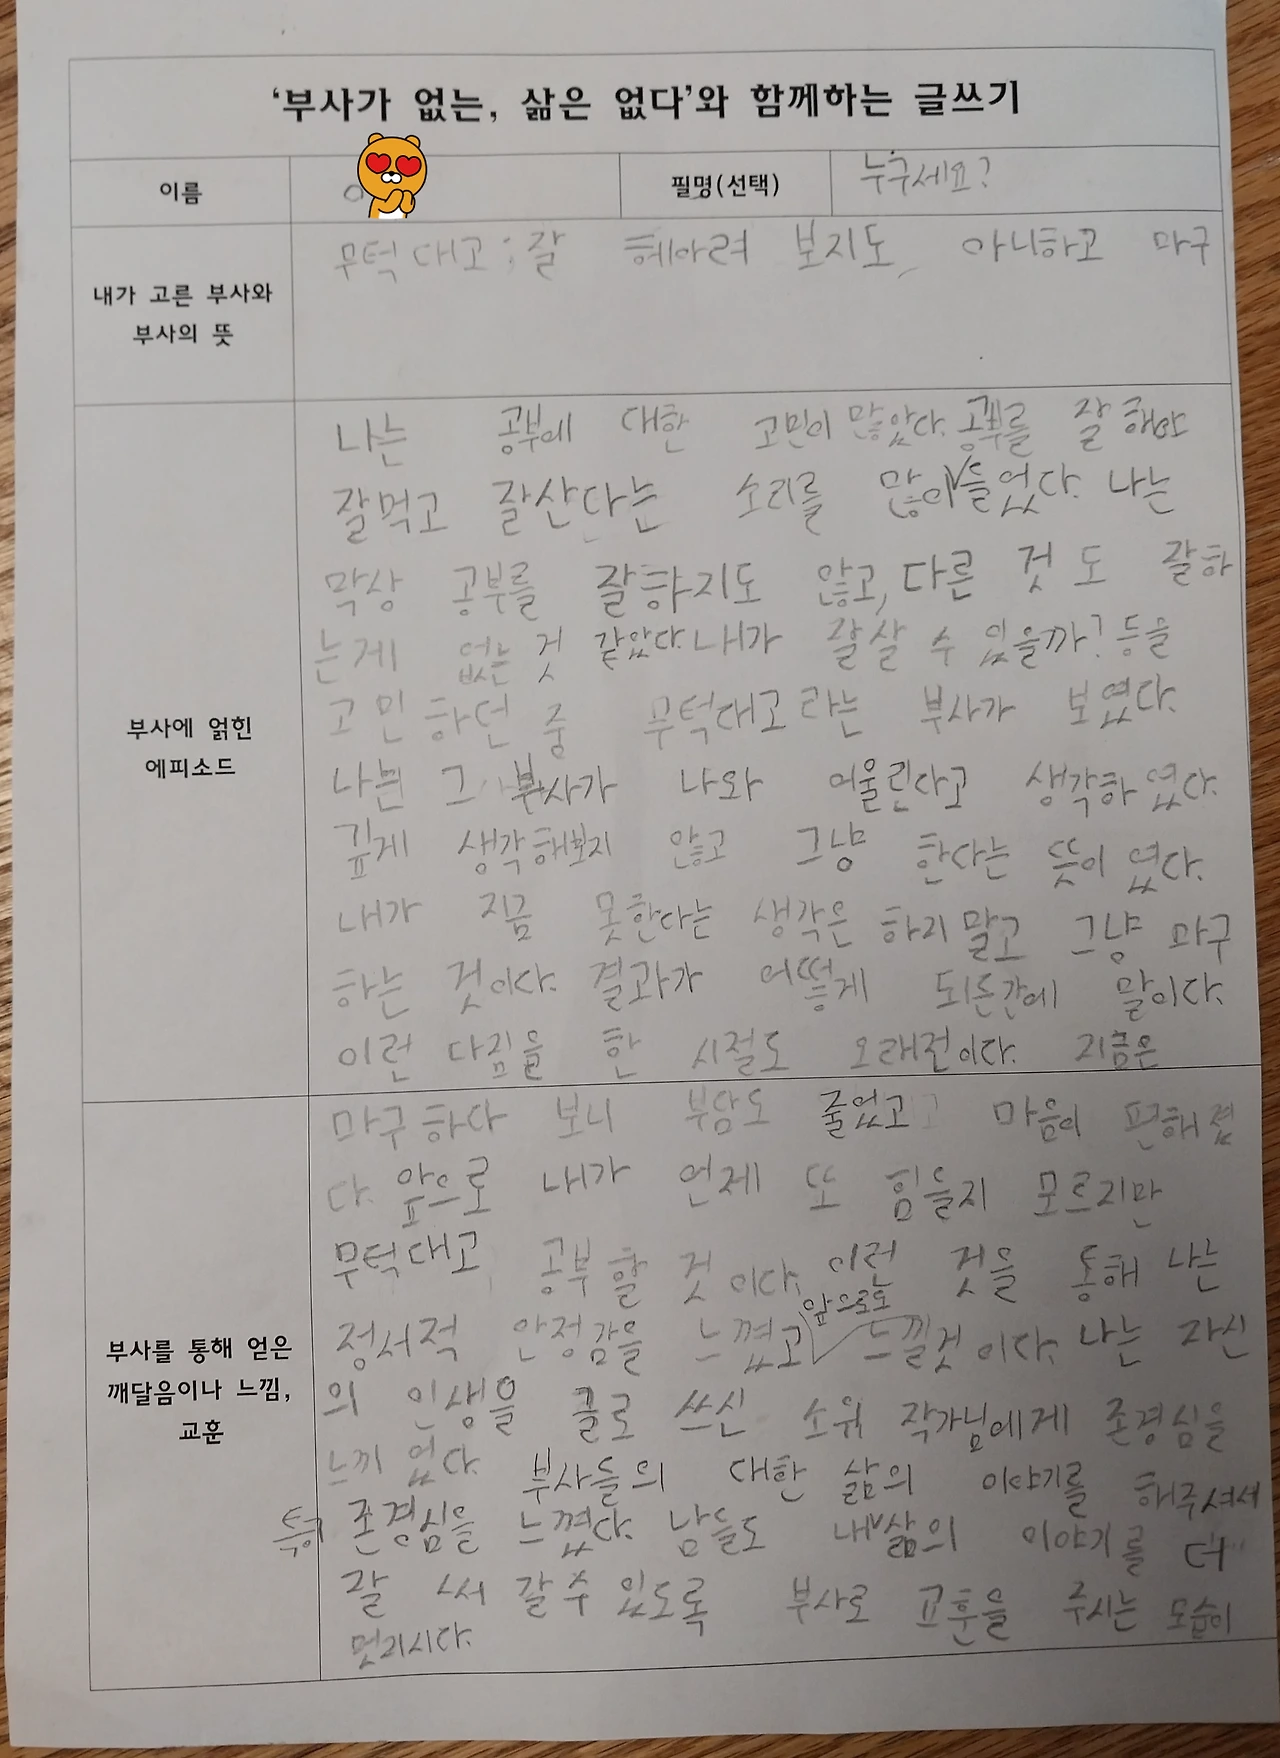 '부사가 없는, 삶은 없다'와 함께하는 글쓰기
이름
필명(선택) 누구세요?
내가 고른 부사와
부사의 뜻
무턱대고 : 잘 헤아려 보지도 아니하고 마구
부사에 얽힌
에피소드
나는 공부에 대한 고민이 많았다. 공부를 잘 해야
잘먹고 잘산다는 소리를 많이 들었다. 나는
막상 공부를 잘하지도 않고, 다른 것 도 잘하
는게 없는 것 같았다. 내가 잘살 수 있을까? 등을
고민하던 중 무턱대고라는 부사가 보였다.
나는 그 부사가 나와 어울린다고 생각하였다.
깊게 생각해보지 않고 그냥 한다는 뜻이 였다.
내가 지금 못한다는 생각은 하지말고 그냥 마구
하는 것이다. 결과가 어떻게 되든간에 말이다.
이런 다짐을 한 시절도 오래전이다. 지금은
부사를 통해 얻은
깨달음이나 느낌,
교훈
마구하다 보니 부담도 줄었고 마음이 편해졌
다. 앞으로 내가 언제 또 힘들지 모르지만
무턱대고 공부할 것 이다. 이런 것을 통해 나는
정서적 안정감을 느꼈고 앞으로도 느낄것 이다. 나는 자신
의 인생을 글로 쓰신 소위 작가님에게 존경심을
느끼었다. 부사들의 대한 삶의 이야기를 해주셔서
특히 존경심을 느꼈다. 남들도 내 삶의 이야기를 더
잘 써 갈 수 있도록 부사로 교훈을 주시는 모습이
멋지시다.